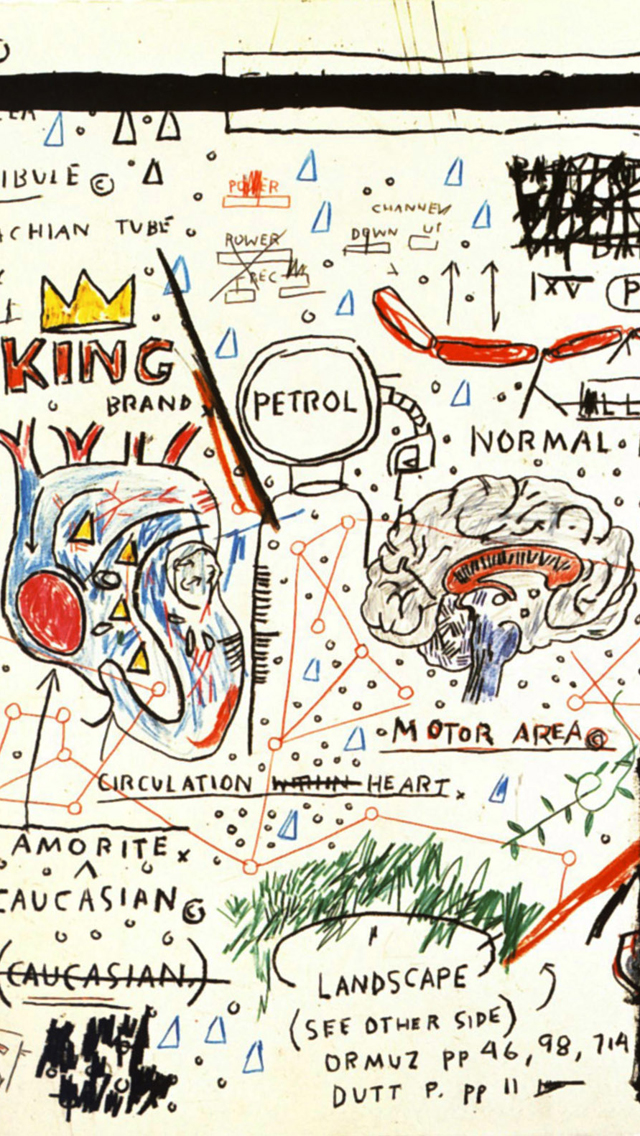 IBULE ©
ACHIAN TUBE
POWER
POWER
REC
CHANNEL
DOWN UP
IXV
KING
BRAND
PETROL
NORMAL
MOTOR AREA ©
CIRCULATION WITHIN HEART.
AMORITE
CAUCASIAN ©
(CAUCASIAN)
LANDSCAPE
(SEE OTHER SIDE)
ORMUZ PP 46, 98, 714
DUTT P. PP 11